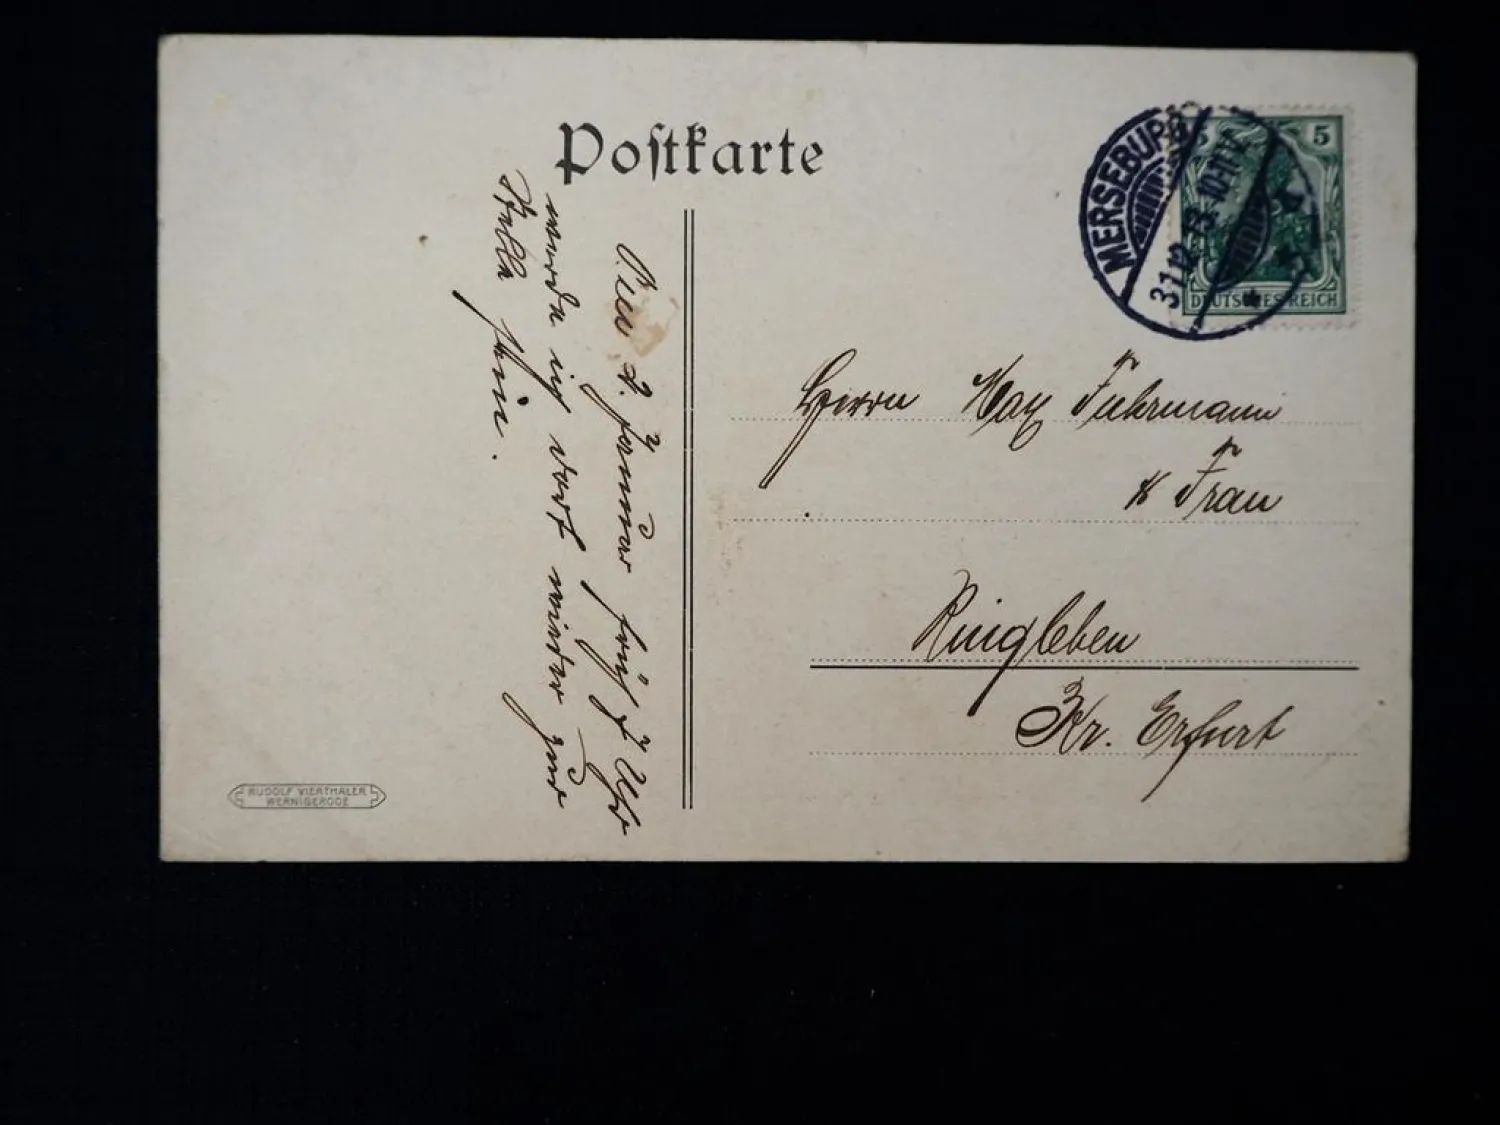 Postkarte
MERSEBURG
31.12.13. 10-11V.
5
5
DEUTSCHES REICH
Am 2. Januar früh 7 Uhr
werde ich dort wieder zur
Stelle sein.
Herrn Max Fuhrmann
& Frau
Ringleben
Kr. Erfurt
RUDOLF VIERTHALER
WERNIGERODE